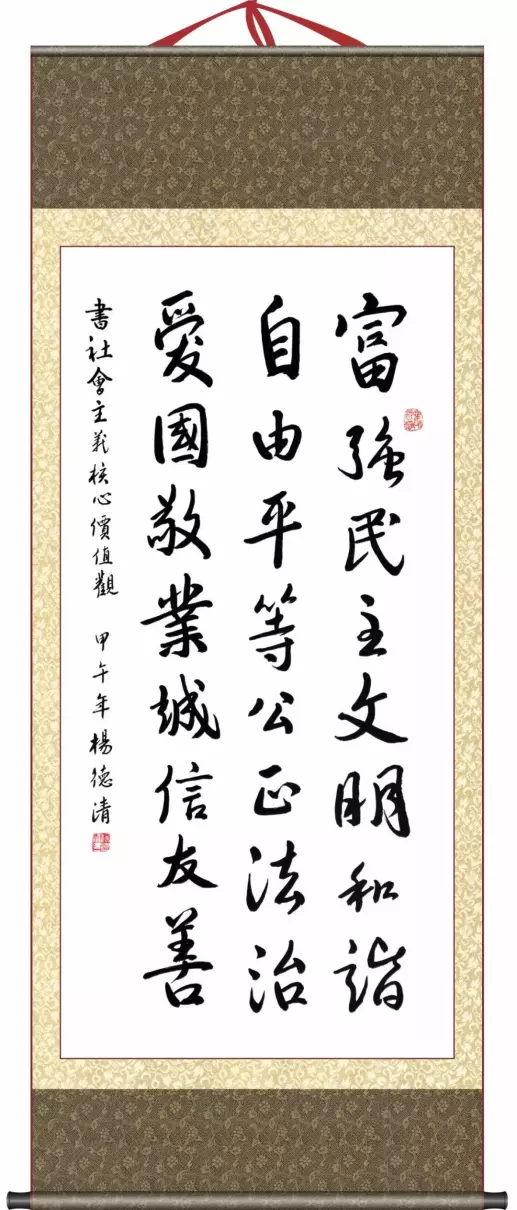 富強民主文明和諧
自由平等公正法治
愛國敬業誠信友善
書社會主義核心價值觀 甲午年楊德清